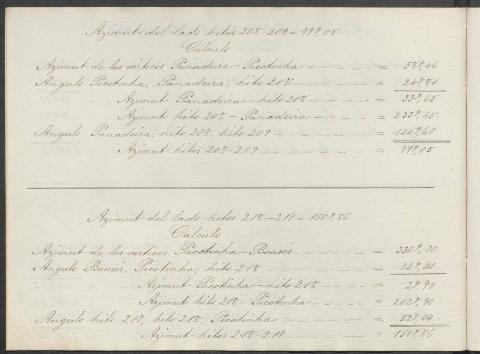 Azimut del lado hitos 208-209 = 79º,05
Cálculo
Azimut de los vértices Panadeira-Picotinha = 58º,46
Angulo Picotinha, Panadeira, hito 208 = 24º,81
Azimut Panadeira-hito 208 = 33º,65
Azimut hito 208-Panadeira = 233º,65
Angulo Panadeira, hito 208, hito 209 = 154º,60
Azimut hitos 208-209 = 79º,05
Azimut del lado hitos 218-217 = 150º,86
Cálculo
Azimut de los vértices Picotinha- = 330º,70
Angulo Picotinha, hito 218 = 72º,20
Azimut Picotinha-hito 218 = 2º,90
Azimut hito 218-Picotinha = 202º,90
Angulo hito 217, hito 218, Picotinha = 52º,04
Azimut hitos 218-217 = 150º,86